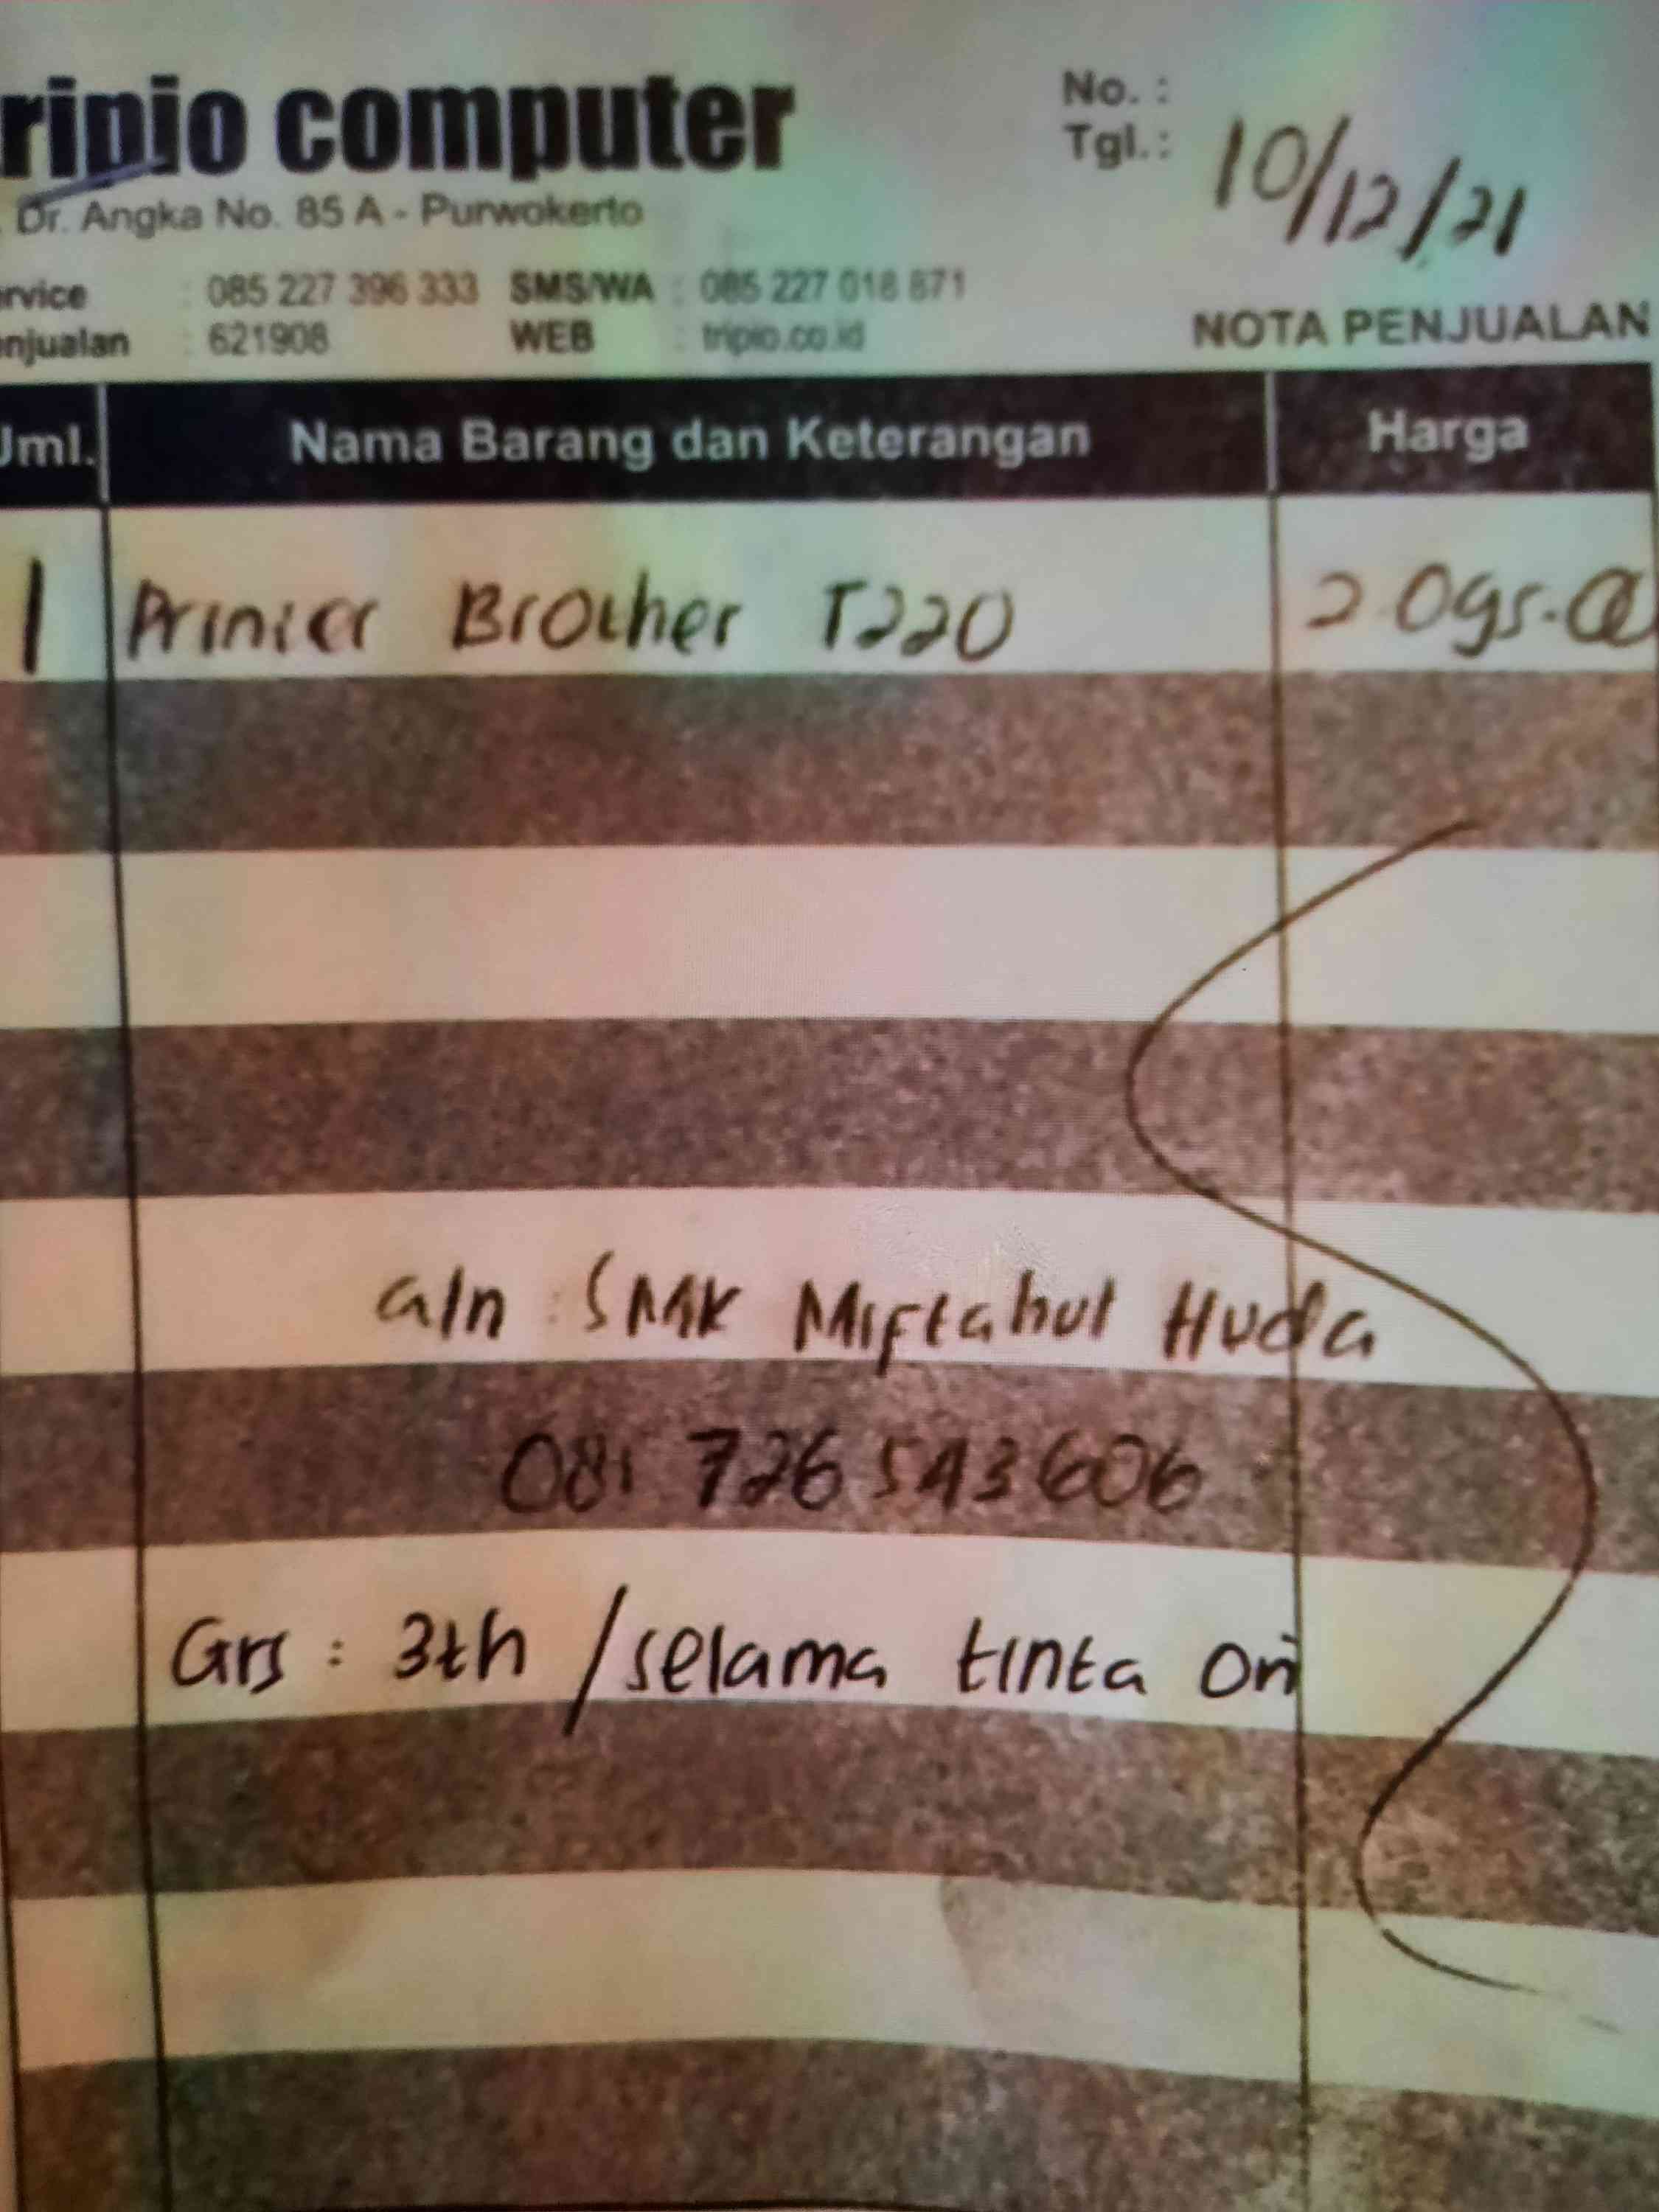 ripio computer
Dr. Angka No. 85 A - Purwokerto
No. :
Tgl. : 10/12/21
rvice : 085 227 396 333 SMS/WA : 085 227 018 871
njualan : 621908 WEB : tripio.co.id
NOTA PENJUALAN
Jml. Nama Barang dan Keterangan Harga
1 Printer Brother T220 2.095.00
a/n : SMK Miftahul Huda
081 726 543 606
Grs : 3th / selama tinta Ori